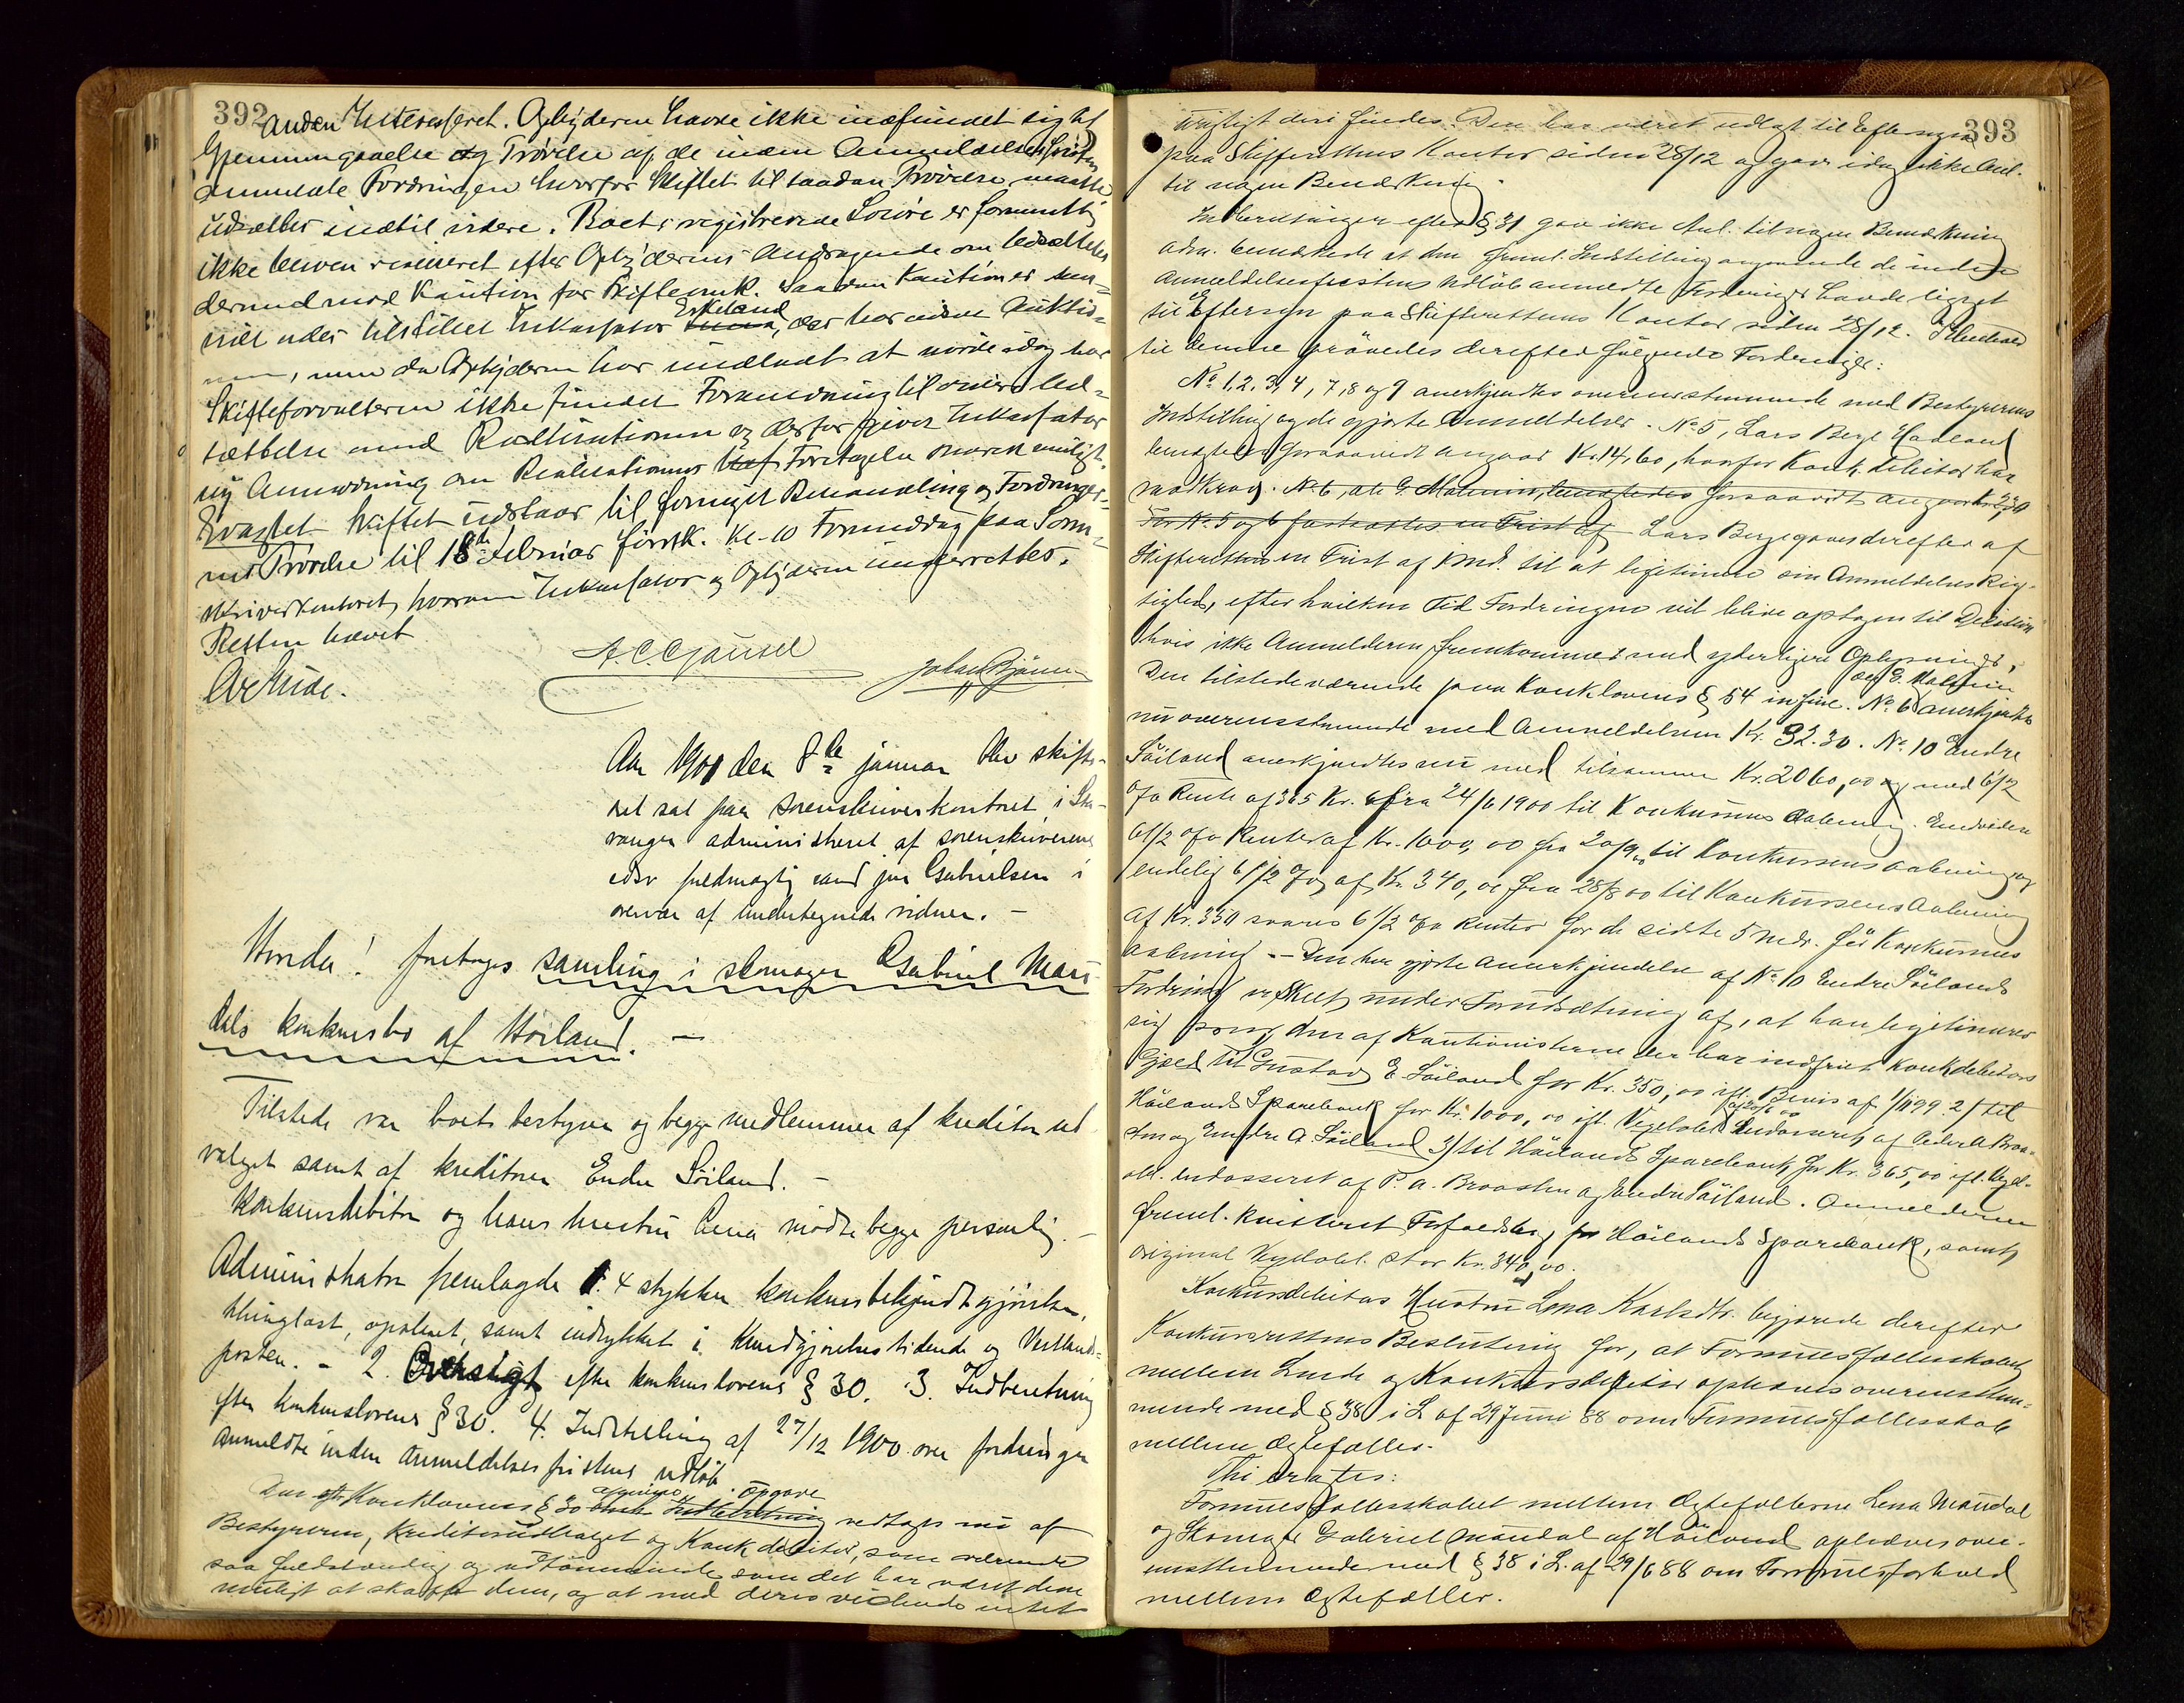 392
anden Interesseret. Opbyderen havde ikke indfundet sig til
Gjennemgaaelse og Prøvelse af de inden Anmeldelsesfristen
anmeldte Fordringer hvorfor Skiftet til saadan Prøvelse maatte
udsættes indtil videre. Boets registrerede Løsøre er foreløbig
ikke bleven realiseret efter Opbyderens Andragende om Udsættelse
dermed mod Kaution for Skifteomk. Saadan Kaution er
tillet Inkassator Erkeland, der har Auktio-
nen, men da Opbyderen har undladt at møde idag har
Skifteforvalteren ikke fundet Foranledning til videre Ud-
sættelse med Realisationen og derfor giver Inkassator
ny Anmodning om Realisationens Foretagelse snarest muligt.
Evastet Skiftet udstaar til fornyet Behandling og Fordringer-
nes Prøvelse til 18de Februar førstk. Kl. 10 Formiddag paa Soren-
skriverkontoret, hvorom Inkassator og Opbyderen underrettes.
Retten hævet
A. C. Gjausel
Johan Bjännes
Aar 1901 den 8de januar blev skifte-
ret sat paa sorenskriverkontoret i Sta-
vanger administreret af sorenskriverens
edsv fuldmægtig cand jur Gabrielsen i
overvær af undertegnede vidner. –
Hvorda! foretoges samling i skomager Gabriel Mau-
dals konkursbo af Høiland. –
Tilstede var boets bestyrer og begge medlemmer af kreditorud
valget samt af kreditorer Endre Söiland. –
Konkursdebitor og hans hustru Lena mødte begge personlig. –
Administrator fremlagde 1. 4 stykker konkursbekjendtgjørelse,
thinglæst, opslaaet, samt indrykket i Kundgjørelsestidende og Vestlands-
posten. – 2. Oversigt efter konkurslovens § 30. 3. Indberetning
efter konkurslovens § 30. 4. Indstilling af 27/12 1900 over fordringer
anmeldte inden anmeldelsesfristens udløb.
Den efter Konklovens § 30 afgivne Opgave vedtoges nu af
Bestyreren, Kreditorudvalget og Konk debitor, som værende
saa fuldstændig og udtømmende som det har været dem
muligt at skaffe dem, og at med deres vidende intet
393
urigtigt deri findes. Den har været udlagt til Eftersyn
paa Skifterettens Kontor siden 28/12 og gav idag ikke Anl.
til nogen Bemærkning.
Indberetningen efter § 31 gav ikke Anl. til nogen Bemærkning
adm. bemærkede at den freml. Indstilling angaaende de inden
Anmeldelsesfristens Udløb anmeldte Fordringer havde ligget
til Eftersyn paa Skifterettens Kontor siden 28/12. I Henhold
til denne prøvedes derefter følgende Fordringer:
No 1, 2, 3, 4, 7, 8 og 9 anerkjendtes overensstemmende med Bestyrerens
Indstilling og de gjorte Anmeldelser. No 5, Lars Berge Høiland
benægtedes forsaavidt angaar Kr. 14,60, hvorfor Konk. debitor har
modkrav. No 6, ald G. Malmin, benægtedes forsaavidt angaar Kr. 2,30
For No 5 og 6 fastsattes en Frist af Lars Berge gaves derefter af
Skifteretten en Frist af 1 Md. til at legitimere sin Anmeldelses Rig-
tighed, efter hvilken Tid Fordringen vil blive optagen til Decision
hvis ikke Anmelderen fremkommer med yderligere Oplysninger,
Den tilstedeværende paa Konklovens § 54 in fine. No 6 ald G. Malmin anerkjendtes
nu overensstemmende med Anmeldelsen Kr. 32.30. No 10 Endre
Söiland anerkjendtes nu med tilsammen Kr. 2060,00 og med 6 1/2
o/o Rente af 365 Kr. fra 24/6 1900 til Konkursens Aabning. Endvidere
6 1/2 o/o Renter af Kr. 1000,00 fra 20/9 00 til Konkursens aabning og
endelig 6 1/2 o/o af Kr. 340,00 fra 28/8 00 til Konkursens Aabning
Af Kr. 350 svares 6 1/2 o/o Renter for de sidste 5 Mdr. før Konkursens
aabning. – Den her gjorte Anerkjendelse af No 10 Endre Söilands
Fordring er skeet under Forudsætning af, at han legitimerer
sig som den af Kautionisterne der har indfriet Konkdebitors
Gjæld til Gustav E. Söiland for Kr. 350,00 ifl. Bevis af 1/11 99. 2) til
Höilands Sparebank for Kr. 1000,00 ifl. Vexelobl. endosseret af Peder A. Braa-
sten og Endre A. Söiland 3) til Höilands Sparebank for Kr. 365,00 ifl. Vexel-
obl. endosseret af P. A. Braasten og Endre Söiland. Anmelderen
freml. kvitteret Forfaldsbrev for Höilands Sparebank, samt
original Vexelobl. stor Kr. 340,00.
Konkursdebitors Hustru Lena Karlsdtr. begjærede derefter
Konkursrettens Beslutning for, at Formuesfællesskabet
mellem hende og Konkursdebitor ophæves overensstem-
mende med § 38 i L. af 29 Juni 88 om Formuesfællesskab
mellem Ægtefæller.
Thi eragtes:
Formuesfællesskabet mellem Ægtefællerne Lena Maudal
og Skomager Gabriel Maudal af Höiland ophæves over-
ensstemmende med § 38 i L. af 29/6 88 om Formuesforhold
mellem Ægtefæller.